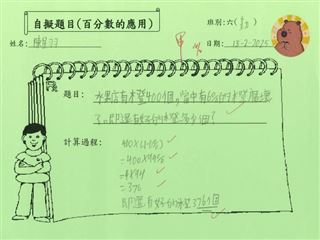 自擬題目(百分數的應用)
班別:六( )
姓名:
日期: 13-2-2025
題目: 水果店有木瓜400個,當中有6%的木瓜腐壞
了,即還有好的木瓜多少個?
計算過程:
400×(1-6%)
=400×94%
=4×94
=376
即還有好的木瓜376個